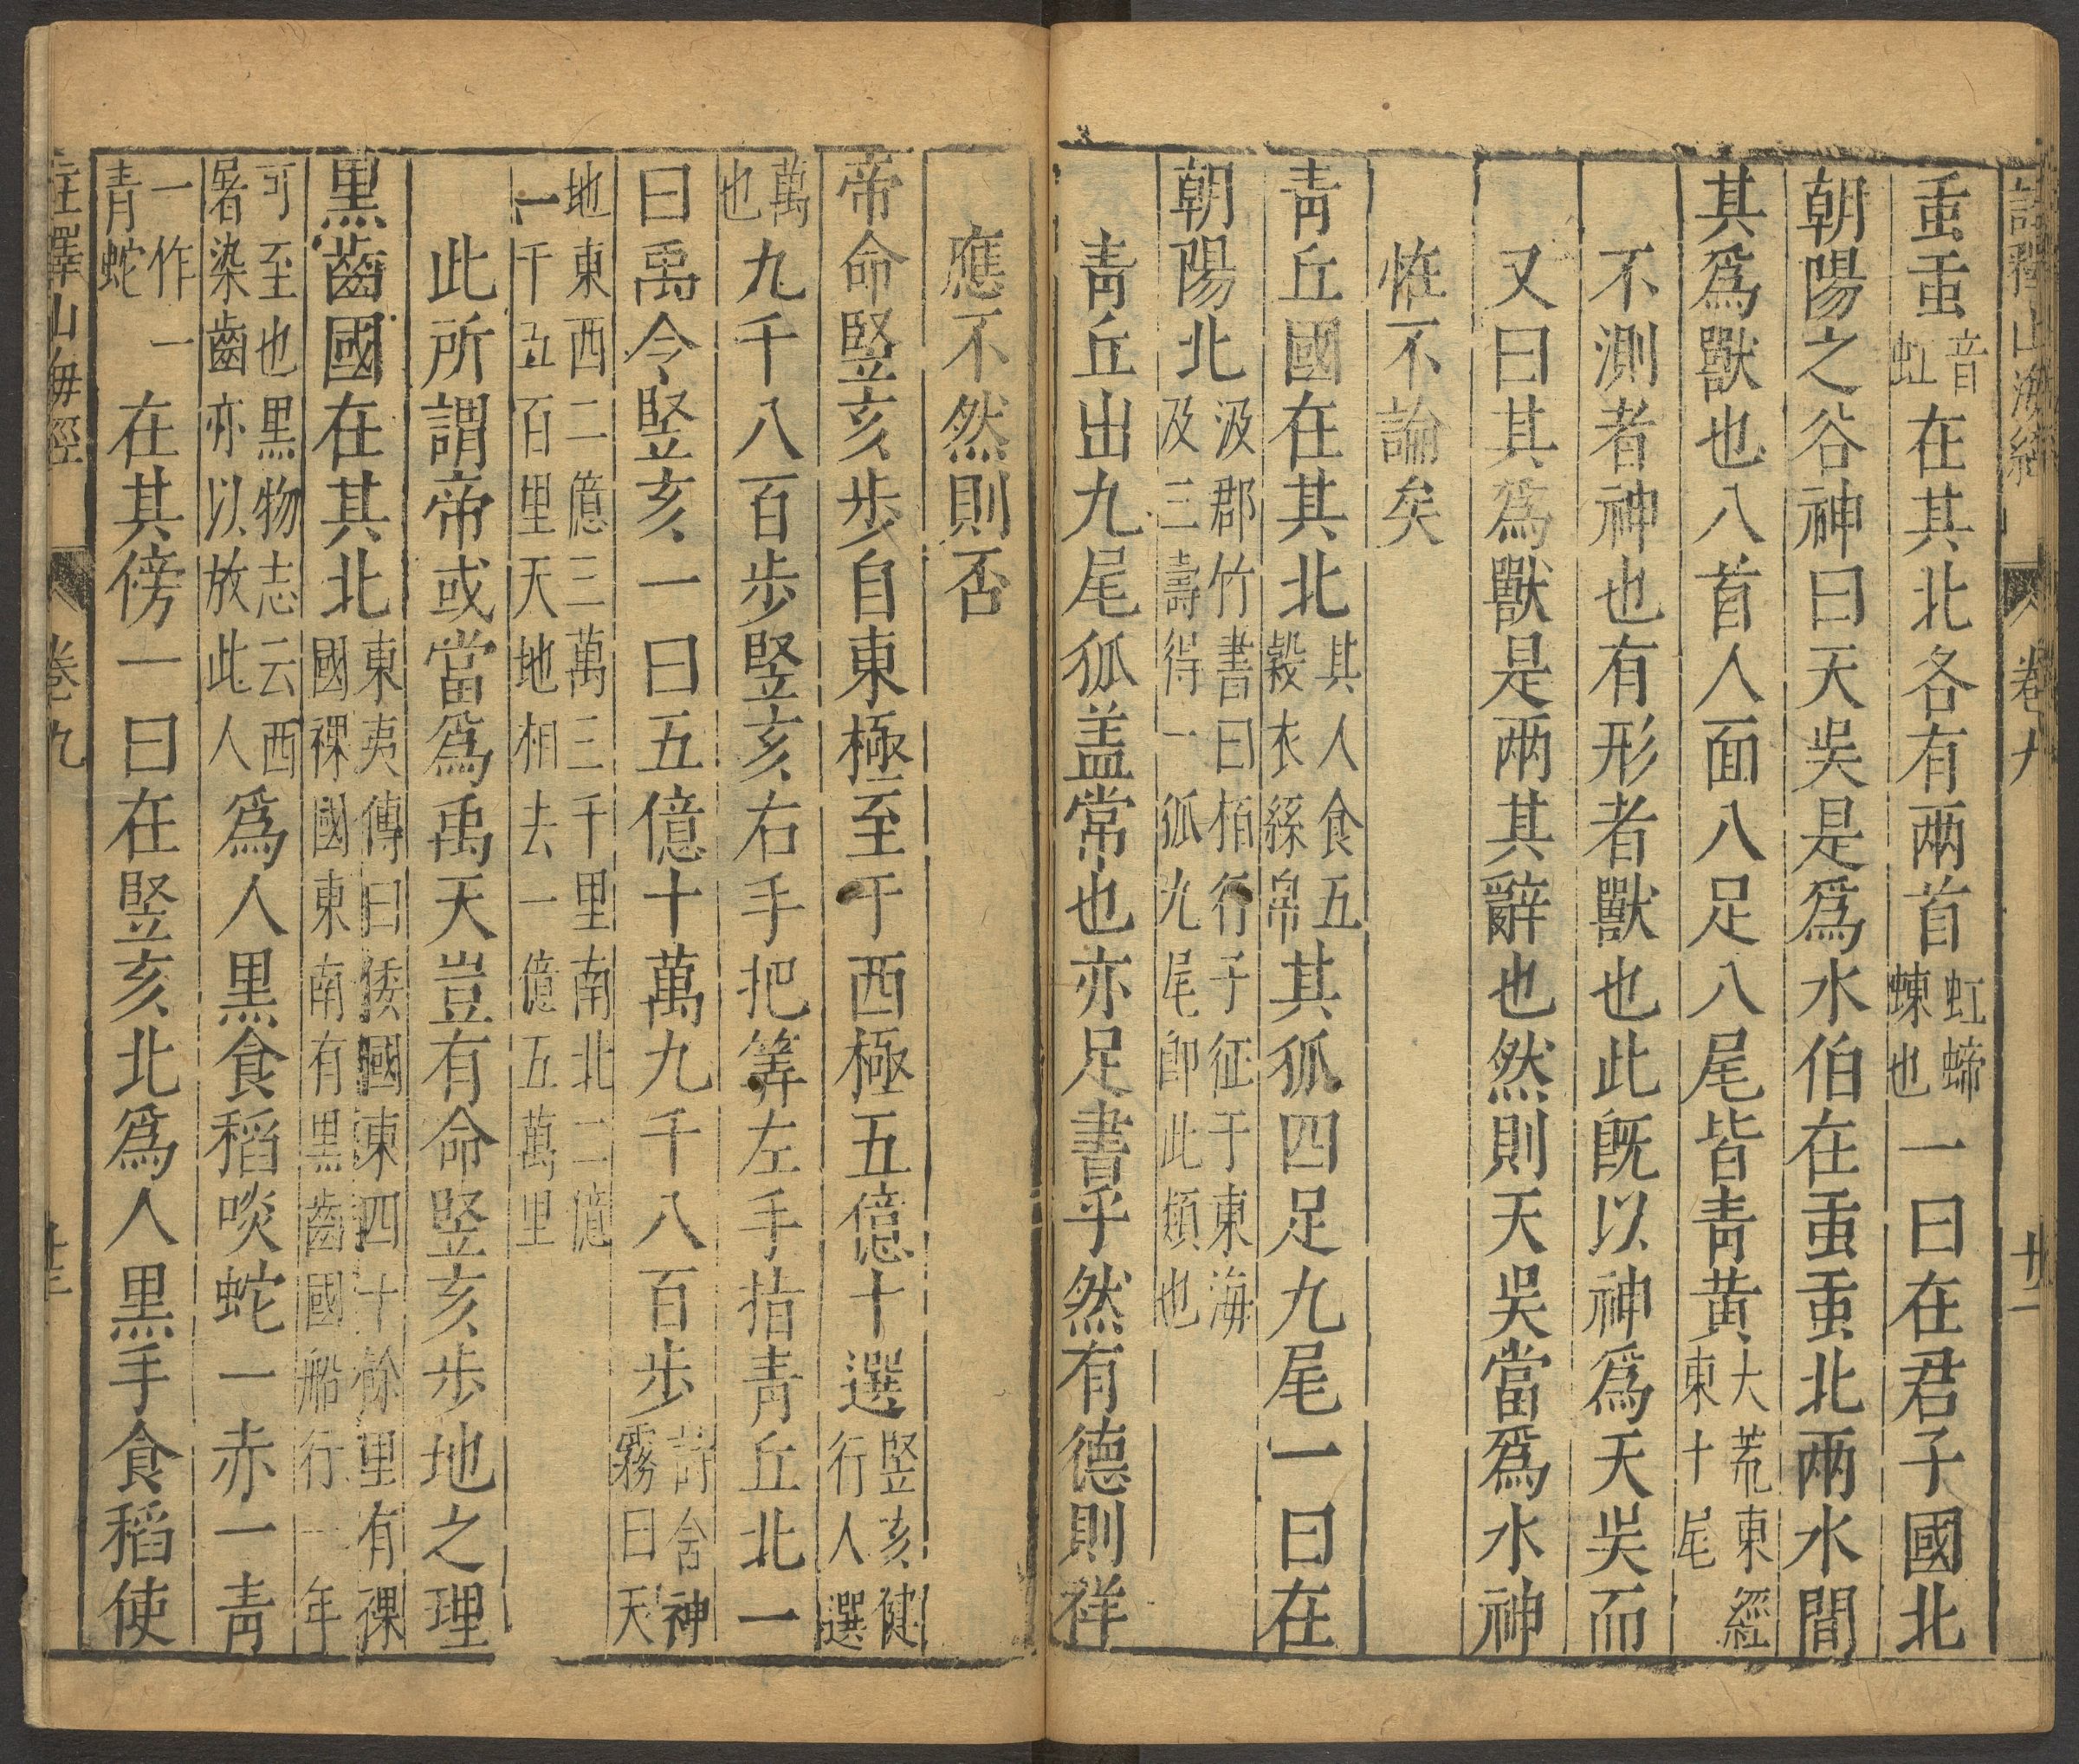 註釋山海經 卷九 廿二
䖝䖝音虹在其北各有兩首虹蝃蝀也一曰在君子國北
朝陽之谷神曰天吳是爲水伯在䖝䖝北兩水間
其爲獸也八首人面八足八尾皆青黃大荒東經東十尾
不測者神也有形者獸也此旣以神爲天吳而
又曰其爲獸是两其辭也然則天吳當爲水神
恠不論矣
青丘國在其北其人食五穀衣絲帛其狐四足九尾一曰在
朝陽北汲郡竹書曰栢行子征于東海及三壽得一狐九尾卽此類也
青丘出九尾狐盖常也亦足書乎然有德則祥
應不然則否
帝命竪亥步自東極至于西極五億十選竪亥健行人選
萬也九千八百步竪亥右手把筭左手指青丘北一
曰禹令竪亥一曰五億十萬九千八百步詩含神霧曰天
地東西二億三萬三千里南北二億一千五百里天地相去一億五萬里
此所謂帝或當爲禹天豈有命竪亥步地之理
黑齒國在其北東夷傳曰倭國東四十餘里有裸國裸國東南有黑齒國船行一年
可至也黑物志云西屠染齒亦以放此人爲人黑食稻啖蛇一赤一青
一作一青蛇在其傍一曰在竪亥北爲人黑手食稻使
註釋山海經 卷九 廿三